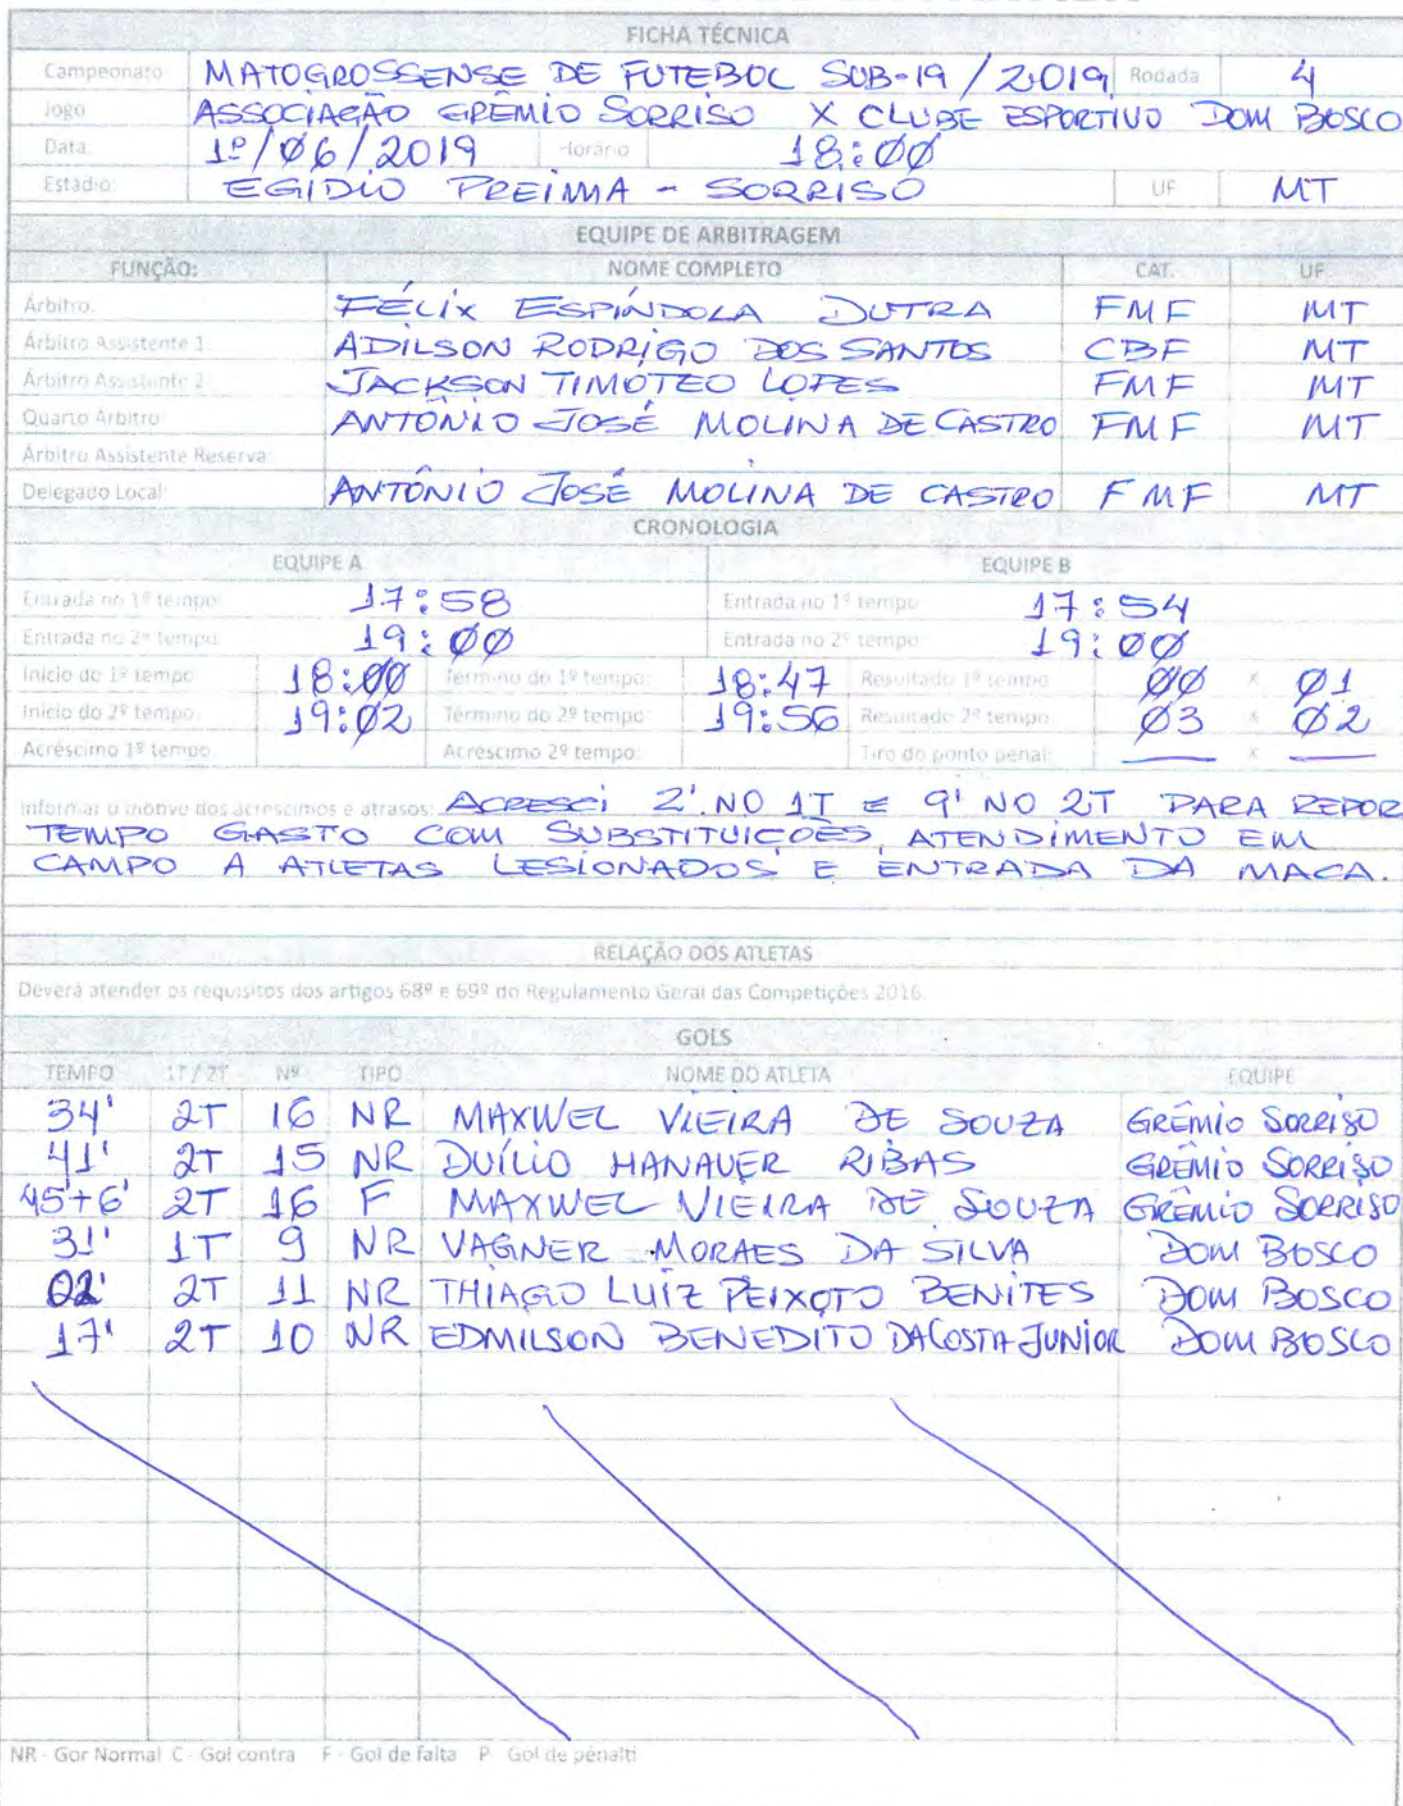 FICHA TÉCNICA
Campeonato: MATOGROSSENSE DE FUTEBOL SUB-19 / 2019 Rodada 4
Jogo ASSOCIAÇÃO GRÊMIO SORRISO X CLUBE ESPORTIVO DOM BOSCO
Data: 1º/06/2019 Horário 18:00
Estádio: EGIDIO PREIMA - SORRISO UF MT
EQUIPE DE ARBITRAGEM
FUNÇÃO: NOME COMPLETO CAT. UF
Árbitro: FÉLIX ESPÍNDOLA DUTRA FMF MT
Árbitro Assistente 1: ADILSON RODRIGO DOS SANTOS CBF MT
Árbitro Assistente 2: JACKSON TIMÓTEO LOPES FMF MT
Quarto Árbitro ANTÔNIO JOSÉ MOLINA DE CASTRO FMF MT
Árbitro Assistente Reserva:
Delegado Local: ANTÔNIO JOSÉ MOLINA DE CASTRO FMF MT
CRONOLOGIA
EQUIPE A EQUIPE B
Entrada no 1º tempo: 17:58 Entrada no 1º tempo 17:54
Entrada no 2º tempo: 19:00 Entrada no 2º tempo 19:00
Início do 1º tempo 18:00 Término do 1º tempo: 18:47 Resultado 1º tempo 00 x 01
Início do 2º tempo: 19:02 Término do 2º tempo: 19:56 Resultado 2º tempo: 03 x 02
Acréscimo 1º tempo: Acréscimo 2º tempo: Tiro do ponto penal: — x —
Informar o motivo dos acréscimos e atrasos: ACRESCI 2' NO 1T E 9' NO 2T PARA REPOR
TEMPO GASTO COM SUBSTITUIÇÕES, ATENDIMENTO EM
CAMPO A ATLETAS LESIONADOS E ENTRADA DA MACA.
RELAÇÃO DOS ATLETAS
Deverá atender os requisitos dos artigos 68º e 69º do Regulamento Geral das Competições 2016.
GOLS
TEMPO 1T/2T Nº TIPO NOME DO ATLETA EQUIPE
34' 2T 16 NR MAXWEL VIEIRA DE SOUZA GRÊMIO SORRISO
41' 2T 15 NR DUÍLIO HANAUER RIBAS GRÊMIO SORRISO
45'+6' 2T 16 F MAXWEL VIEIRA DE SOUZA GRÊMIO SORRISO
31' 1T 9 NR VAGNER MORAES DA SILVA DOM BOSCO
02' 2T 11 NR THIAGO LUIZ PEIXOTO BENITES DOM BOSCO
17' 2T 10 NR EDMILSON BENEDITO DA COSTA JUNIOR DOM BOSCO
NR - Gor Normal C - Gol contra F - Gol de falta P Gol de pênalti